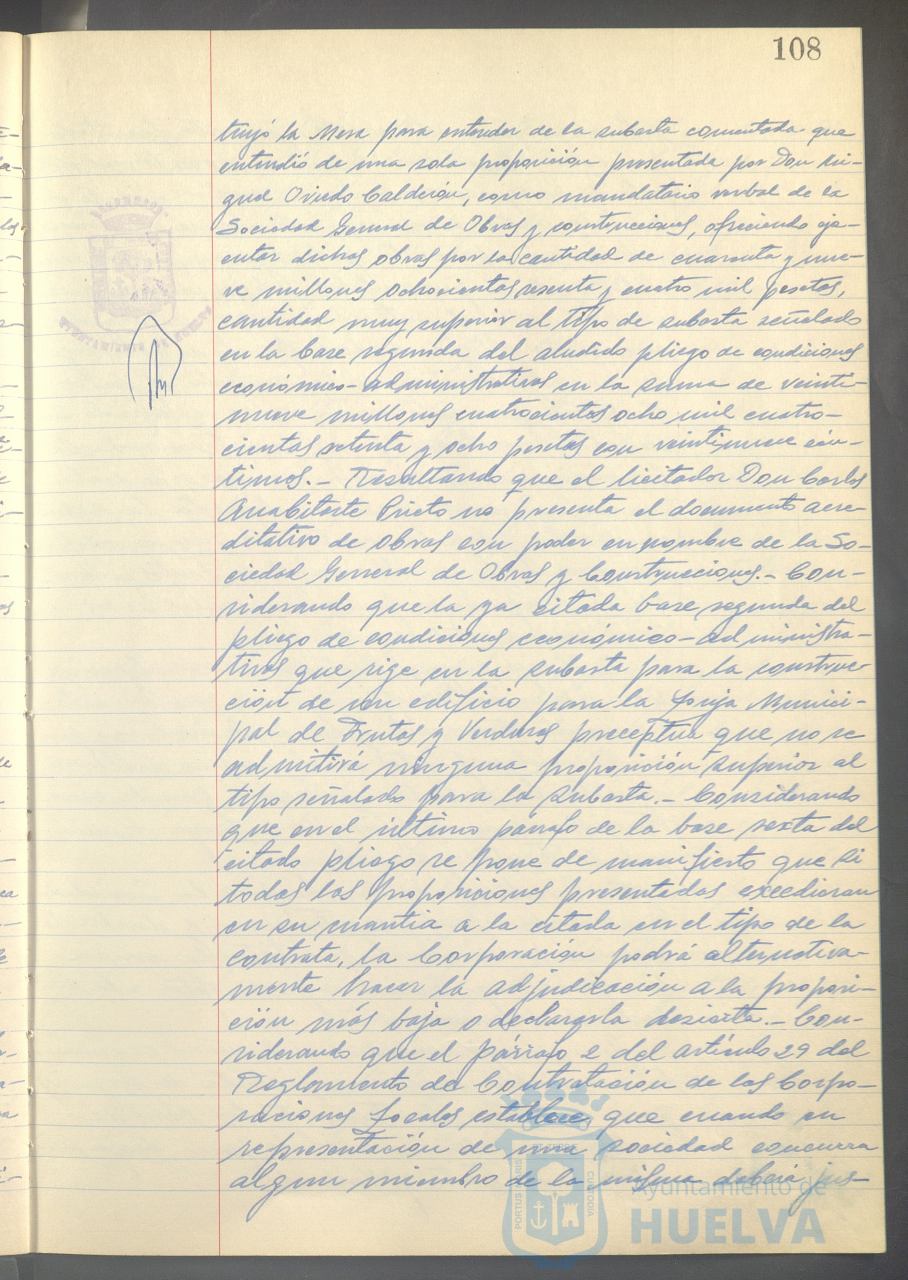 108
tuyó la Mesa para entender de la subasta comentada que
entendió de una sola proposición presentada por Don Mi-
guel Oviedo Calderón, como mandatario verbal de la
Sociedad General de Obras y construcciones, ofreciendo eje-
cutar dichas obras por la cantidad de cuarenta y nue-
ve millones ochocientas sesenta y cuatro mil pesetas,
cantidad muy superior al tipo de subasta señalado
en la base segunda del aludido pliego de condiciones
económico-administrativas en la suma de veinti-
nueve millones cuatrocientas ocho mil cuatro-
cientas setenta y ocho pesetas con veintinueve cén-
timos.- Resultando que el licitador Don Carlos
Anabitarte Prieto no presenta el documento acre-
ditativo de obras con poder en nombre de la So-
ciedad General de Obras y Construcciones.- Con-
siderando que la ya citada base segunda del
pliego de condiciones económico-administra-
tivas que rige en la subasta para la construc-
ción de un edificio para la Lonja Munici-
pal de Frutas y Verduras preceptua que no se
admitirá ninguna proposición superior al
tipo señalado para la subasta.- Considerando
que en el último párrafo de la base sexta del
citado pliego se pone de manifiesto que si
todas las proposiciones presentadas excedieran
en su cuantia a la citada en el tipo de la
contrata, la Corporación podrá alternativa-
mente hacer la adjudicación a la proposi-
ción más baja o declararla desierta.- Con-
siderando que el párrafo 2 del artículo 29 del
Reglamento de Contratación de las Corpo-
raciones Locales establece, que cuando en
representación de una sociedad concurra
algun miembro de la misma deberá jus-
Ayuntamiento de
HUELVA
PORTUS MARIS
ET TERRE
CUSTODIA